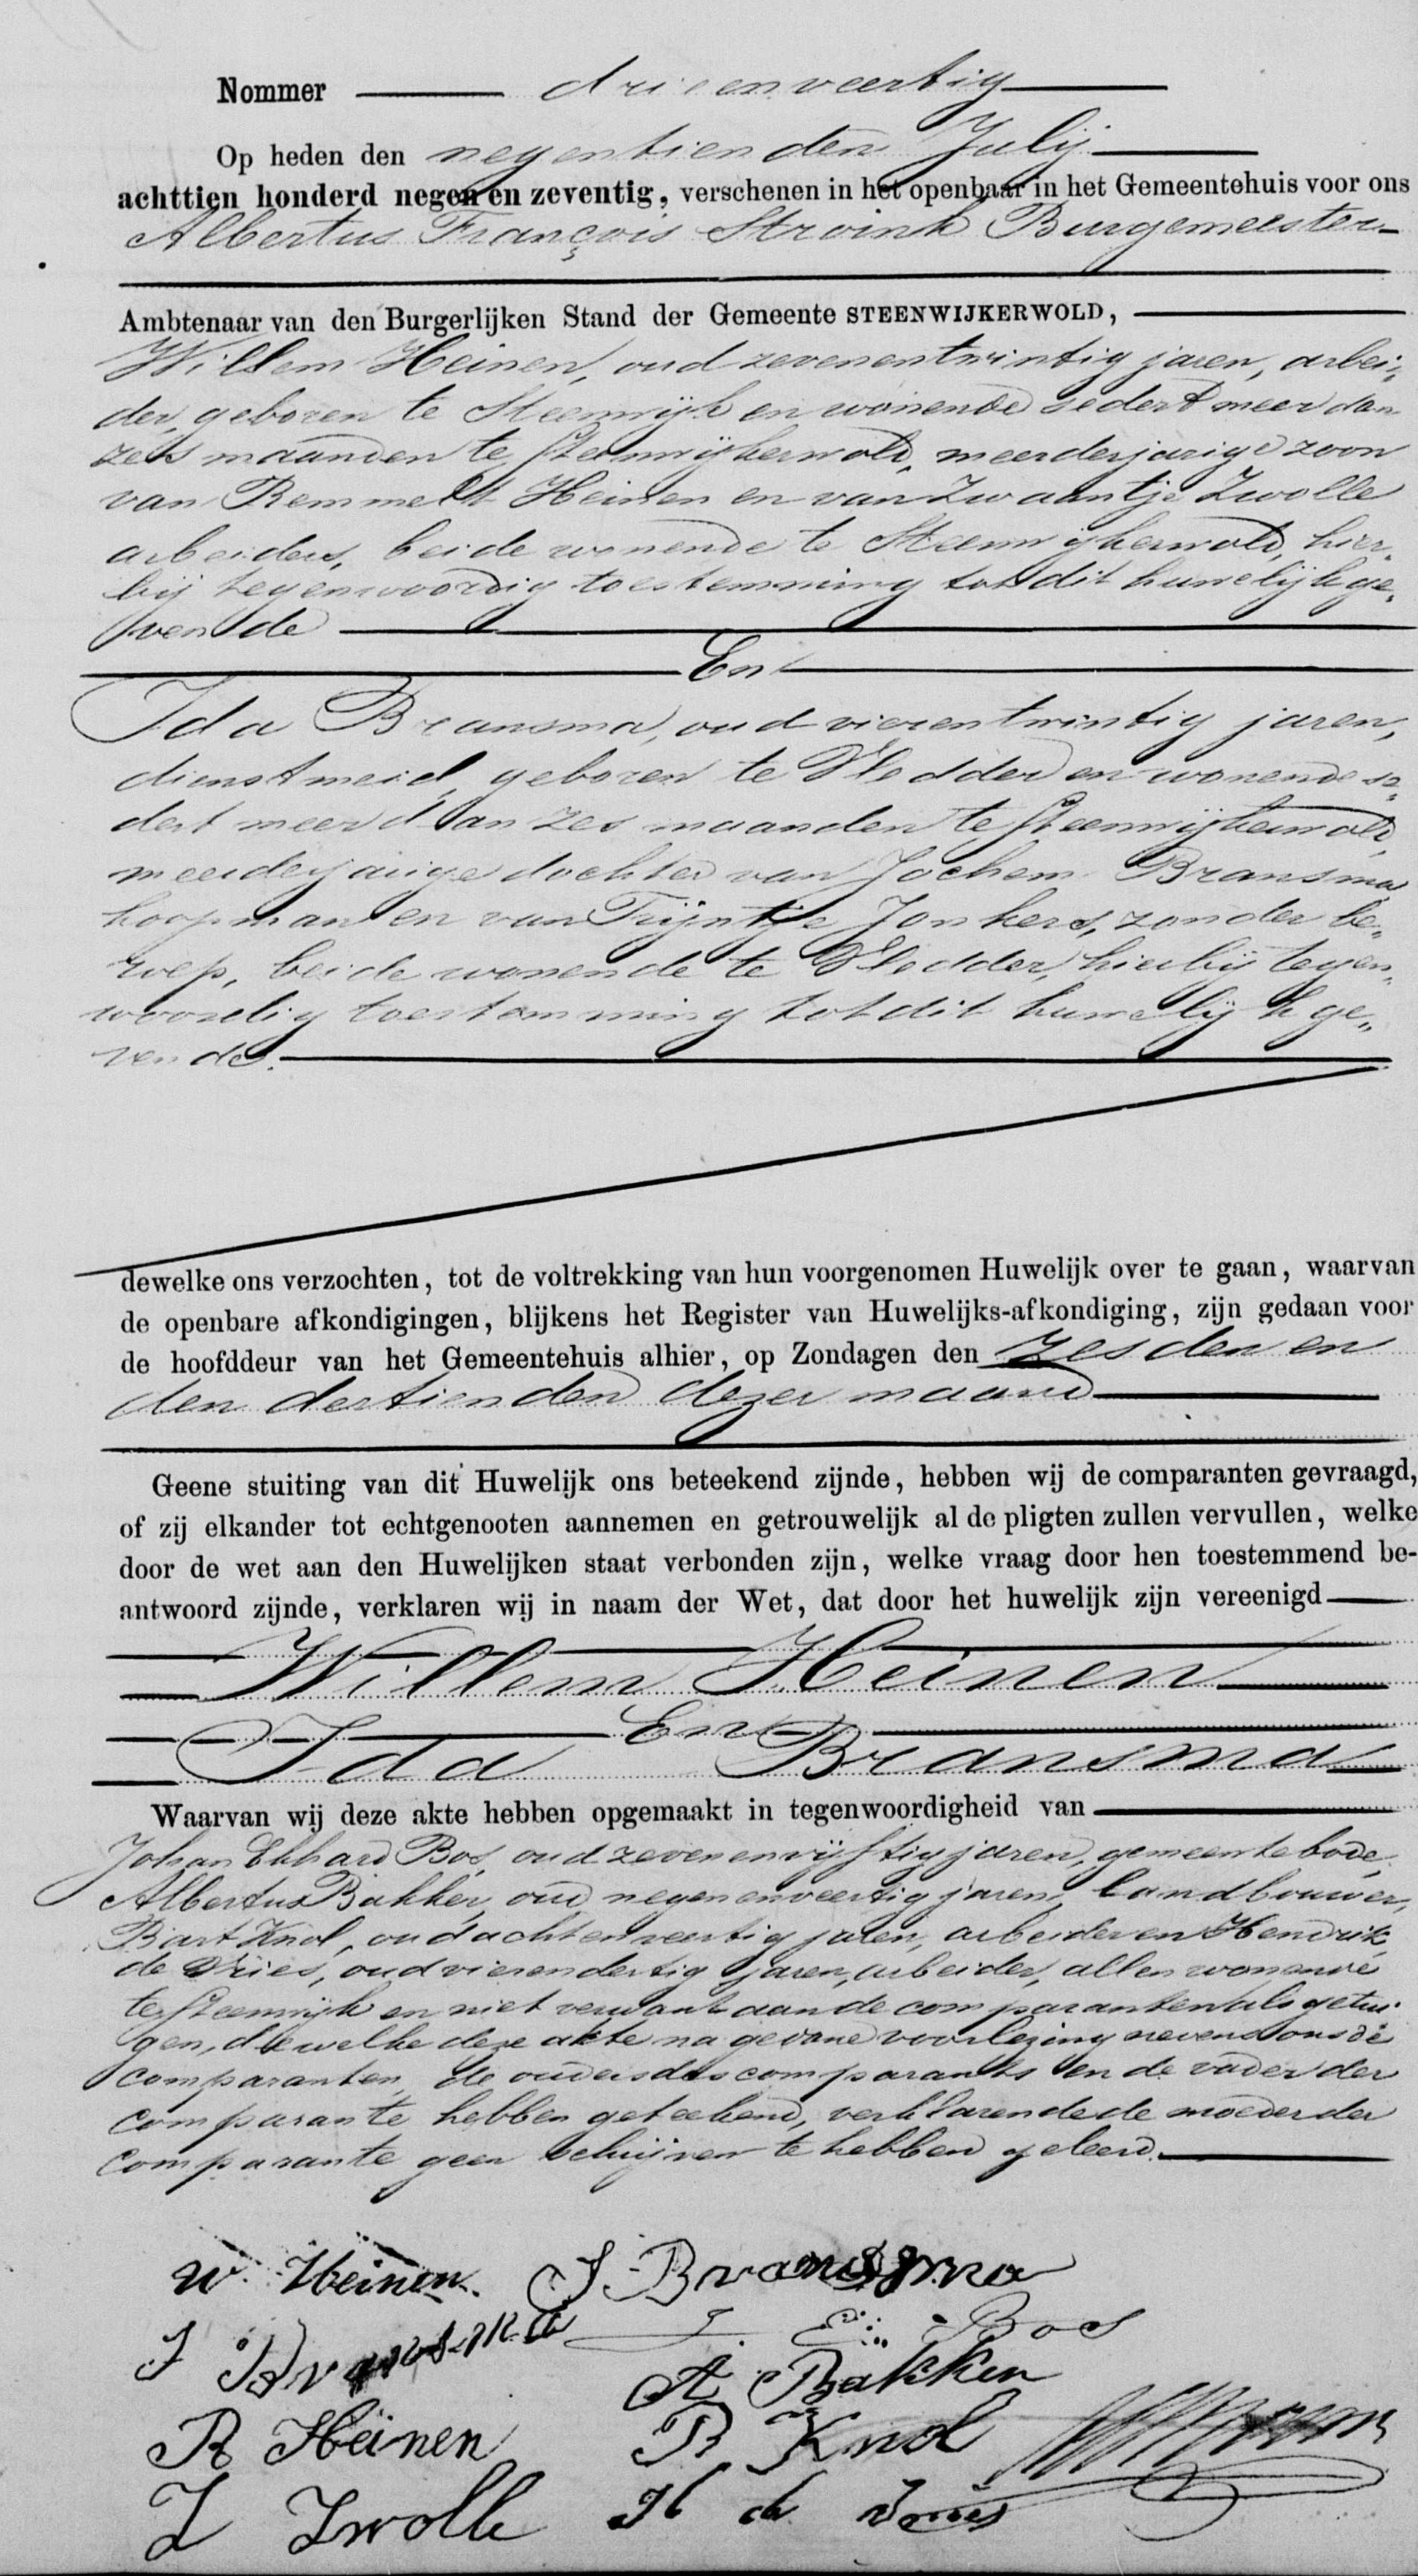 Nommer drieenveertig
Op heden den negentienden Julij
achttien honderd negen en zeventig, verschenen in het openbaar in het Gemeentehuis voor ons
Albertus François Stroink Burgemeester
Ambtenaar van den Burgerlijken Stand der Gemeente STEENWIJKERWOLD,
Willem Heinen, oud zevenentwintig jaren, arbei„
der, geboren te Steenwijk en wonende sedert meer dan
zes maanden te Steenwijkerwold, meerderjarige zoon
van Remmelt Heinen en van Zwaantje Zwolle
arbeiders, beide wonende te Steenwijkerwold, hier„
bij tegenwoordig toestemming tot dit huwelijk ge„
vende
En
Ida Bransma, oud vierentwintig jaren,
dienstmeid, geboren te Vledder en wonende se„
dert meer dan zes maanden te Steenwijkerwold,
meerderjarige dochter van Jochem Bransma
koopman en van Trijntje Jonkers, zonder be„
roep, beide wonende te Vledder, hierbij tegen„
woordig toestemming tot dit huwelijk ge„
vende.
dewelke ons verzochten, tot de voltrekking van hun voorgenomen Huwelijk over te gaan, waarvan
de openbare afkondigingen, blijkens het Register van Huwelijks-afkondiging, zijn gedaan voor
de hoofddeur van het Gemeentehuis alhier, op Zondagen den zesden en
den dertienden dezer maand
Geene stuiting van dit Huwelijk ons beteekend zijnde, hebben wij de comparanten gevraagd,
of zij elkander tot echtgenooten aannemen en getrouwelijk al de pligten zullen vervullen, welke
door de wet aan den Huwelijken staat verbonden zijn, welke vraag door hen toestemmend be-
antwoord zijnde, verklaren wij in naam der Wet, dat door het huwelijk zijn vereenigd
Willem Heinen
En
Ida Bransma
Waarvan wij deze akte hebben opgemaakt in tegenwoordigheid van
Johan Ekhard Bos, oud zevenenvijftig jaren, gemeentebode,
Albertus Bakker, oud negenenveertig jaren, landbouwer,
Bart Knol, oud achtenveertig jaren, arbeider en Hendrik
de Vries, oud vierendertig jaren, arbeider, allen wonende
te Steenwijk en niet verwant aan de comparanten als getui„
gen, dewelke deze akte na gedane voorlezing nevens ons de
comparanten, de ouders des comparants en de vader der
comparante hebben geteekend, verklarende de moeder der
comparante geen schrijven te hebben geleerd.
W Heinen. J Bransma
I Bransma J. E. Bos
A Bakker
R Heinen B Knol
Z Zwolle H de Vries